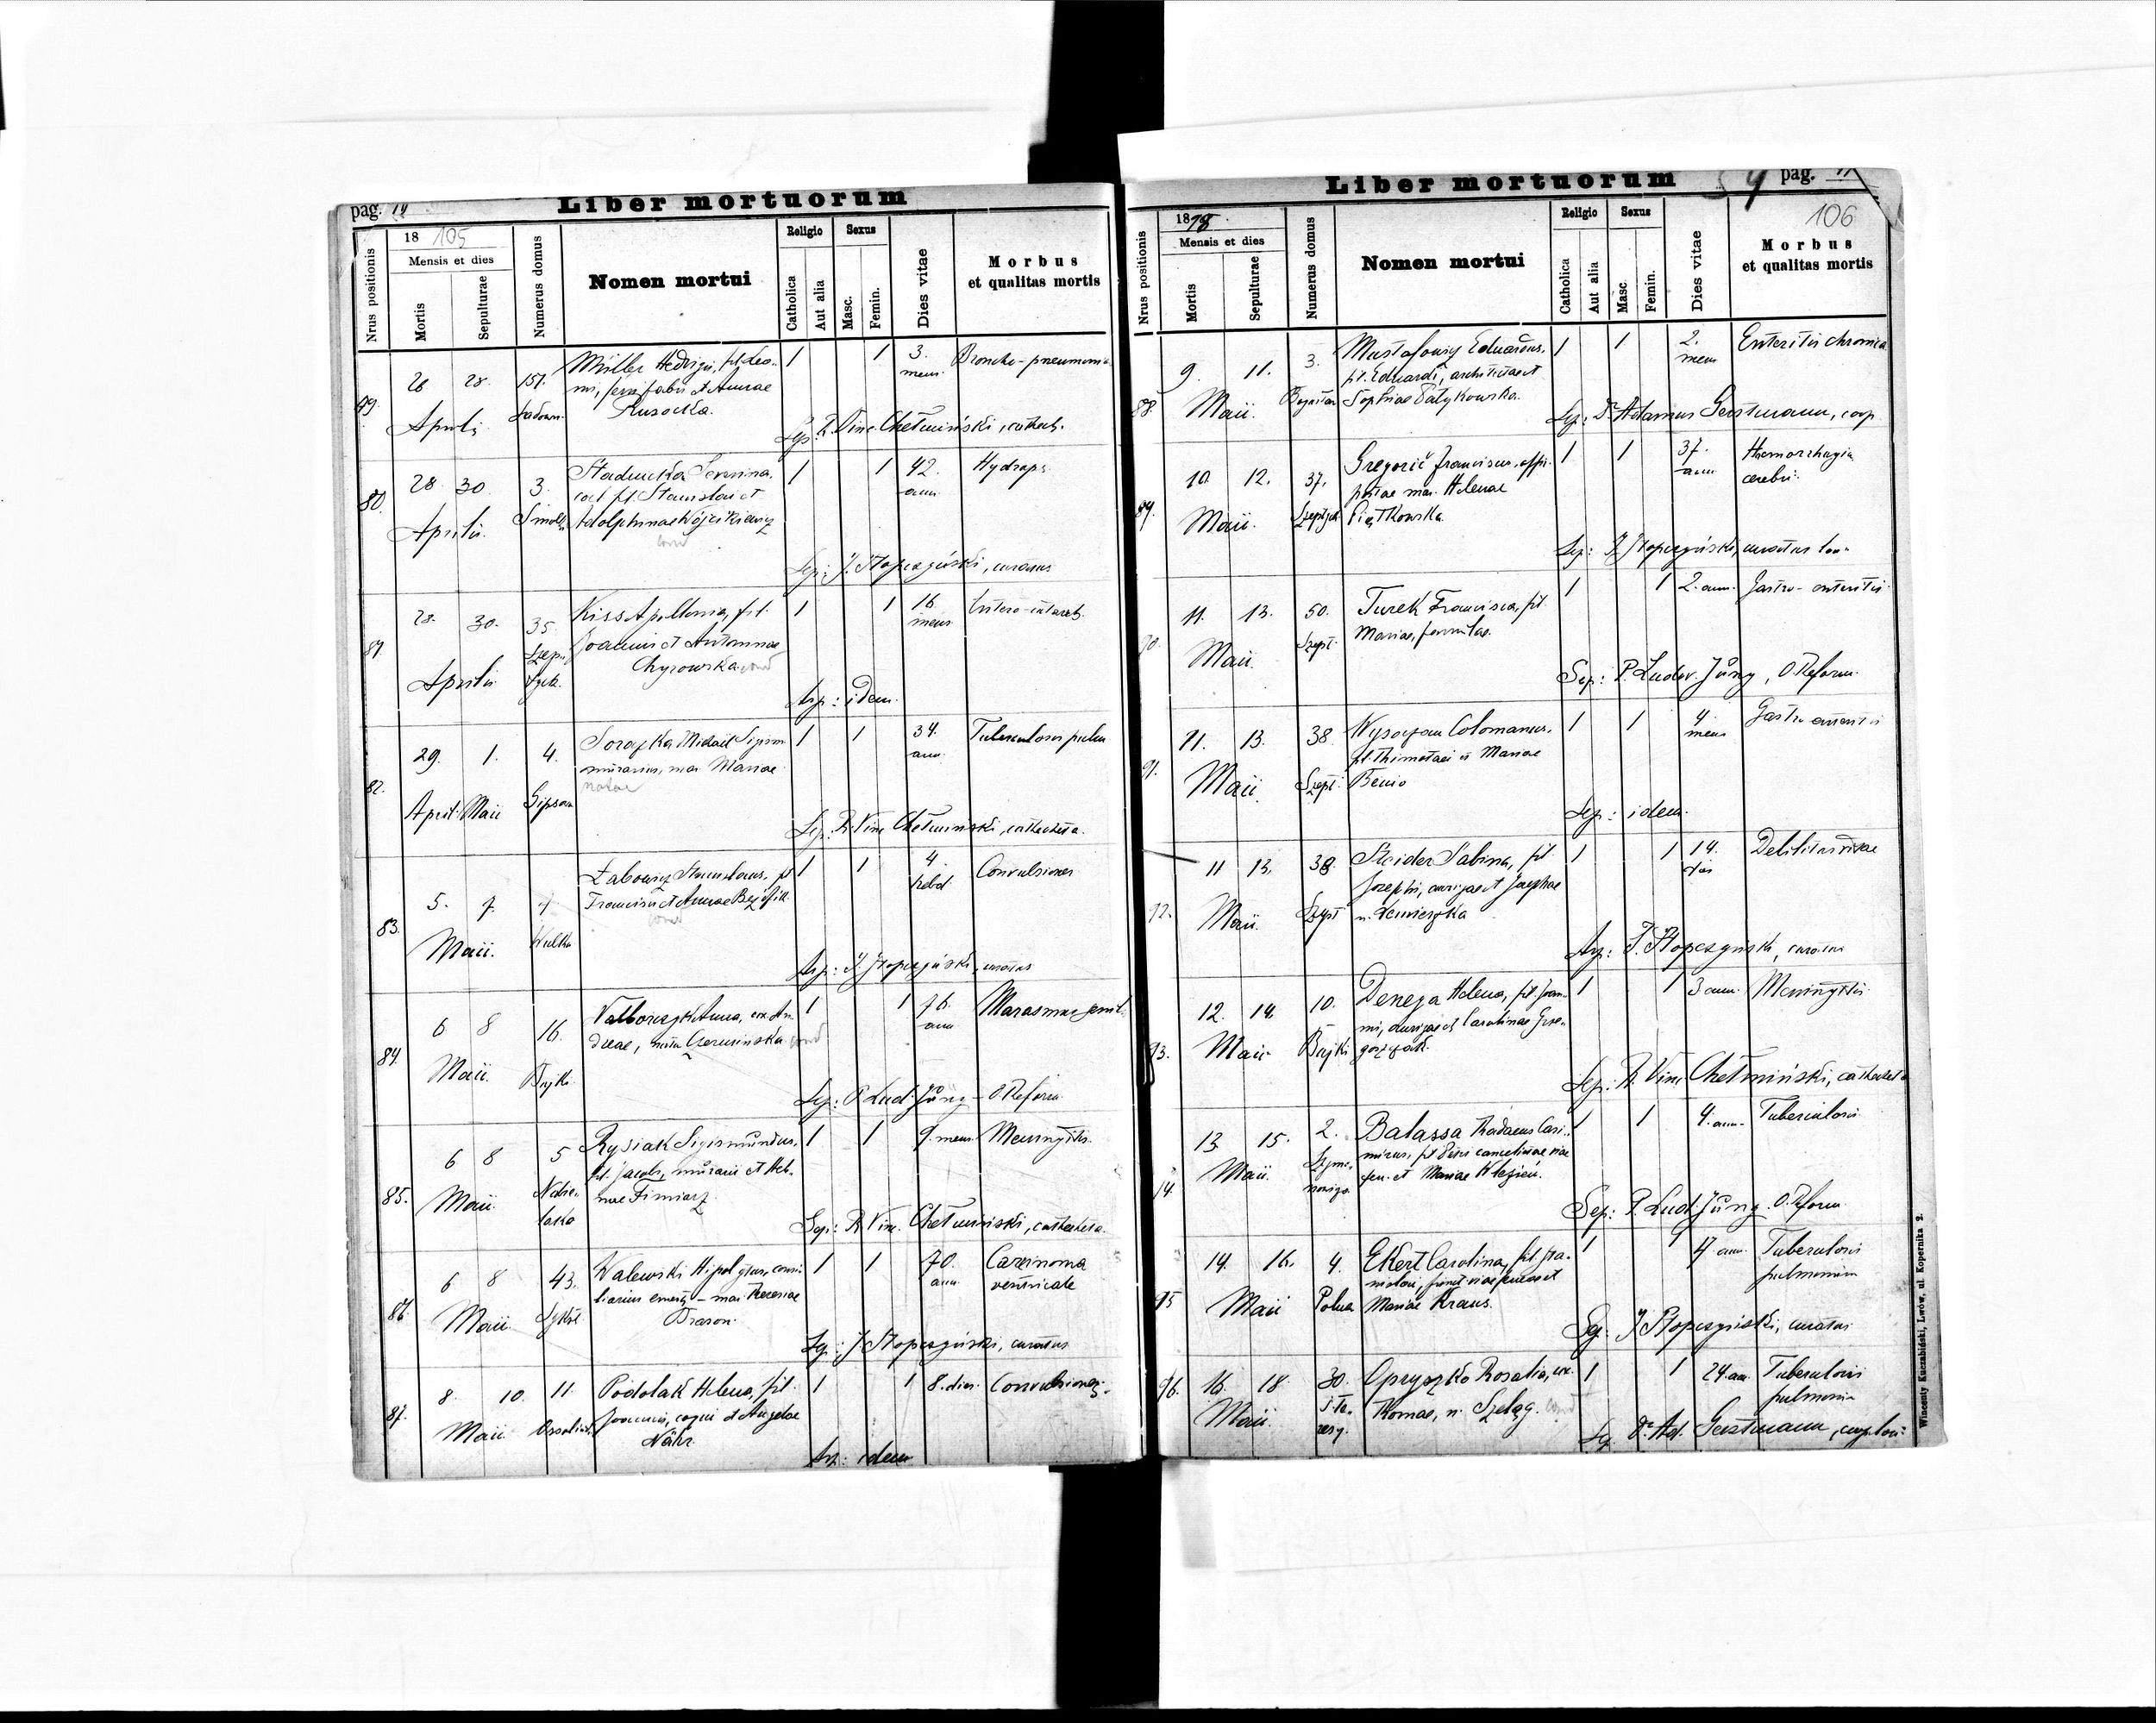 pag. 14
Liber mortuorum
18 105
Mensis et dies
Nrus positionis
Mortis
Sepulturae
Numerus domus
Nomen mortui
Religio
Catholica
Aut alia
Sexus
Masc.
Femin.
Dies vitae
Morbus
et qualitas mortis
79. 26 28. 151. Müller Hedvigis, fil. Leo- 1 1 3. Broncho-pneumonia
mens.
Aprilis ni, ferri fabri et Annae
Rusocka.
Sep: R. Vinc. Chełmiński, catech.
80. 28 30 3. Stadnicka Severina, 1 1 42. Hydrops
ann.
Aprilis cael. fil. Stanislai et
Adolphinae Wójcikiewicz
Sep: J. Stopczyński, curatus
81. 28. 30. 35. Kiss Apollonia, fil. 1 1 16 Entero-catarrh.
mens
Aprilis Joannis et Antoninae
Chyrowska
Sep: idem.
82. 29. 1. 4. Michael 1 1 34. Tuberculosis pulm
ann.
April. Maii Gipsowa murarius, mar. Mariae
natae
Sep: R. Vinc. Chełmiński, catecheta.
83. 5. 7. Żabowicz Stanislaus, fil 1 1 4. Convulsiones
hebd.
Maii. Wulka Francisci et Annae
Sep: J. Stopczyński, curatus
84. 6 8 16. Anna, ux. An- 1 1 76. Marasmus senil.
ann
Maii. Bajki dreae, nata Czerwinska
Sep: P. Lud. Jüng - O. Reform.
85. 6 8 5 Rysiak Sigismundus, 1 1 9. mens. Meningitis.
Maii fil. Jacobi, murarii et Hele-
nae Fimiarz.
Sep: R. Vinc. Chełmiński, catecheta.
86. 6 8 43. Walewski Hipolytus, consi- 1 1 70. Carcinoma
ann. ventriculi
Maii. Sykst. liarius emerit. - mar. Theresiae
Brason.
Sep: J. Stopczyński, curatus
87. 8. 10. 11. Podolak Helena, fil. 1 1 8. dies. Convulsiones.
Maii Ossolińs. Joannis, coqui et Angelae
Nähr.
Sep: idem
Liber mortuorum
pag.
106
1878
Mensis et dies
Nrus positionis
Mortis
Sepulturae
Numerus domus
Nomen mortui
Religio
Catholica
Aut alia
Sexus
Masc
Femin.
Dies vitae
Morbus
et qualitas mortis
88. 9. 11. 3. Mustafowicz Eduardus, 1 1 2. Enteritis chronica
mens
Maii. fil. Eduardi, architectae et
Sophiae Pałykowska.
Sep: Dr Adamus Gerstmann, coop.
89. 10. 12. 37. Gregorič Franciscus, offi- 1 1 37. Haemorrhagia
ann. cerebri.
Maii. Szeptyck. mar. Helenae
Piątkowska.
Sep: J. Stopczyński, curatus
90. 11. 13. 50. Turek Francisca, fil. 1 1 2. ann. Gastro-enteritis
Maii Szept. Mariae, famulae.
Sep: P. Ludov. Jüng, O. Reform.
91. 11. 13. 38 Wysoczan Colomanus, 1 1 4. Gastro enteritis
mens
Maii. Szept. fil. Thimotaei et Mariae
Benio
Sep: idem.
92. 11 13. 38. Sabina, fil. 1 1 14. Debilitas vitae
dies
Maii. Szept Josephi, aurigae et Josephae
n.
Sep: J. Stopczyński, curatus
93. 12. 14. 10. Denega Helena, fil. Joan- 1 1 3 ann. Meningitis
Maii Bajki nis, aurigae et Carolinae Grze-
gorzyak.
Sep: R. Vinc. Chełmiński, catecheta
94. 13 15. 2. Balassa Thadaeus Casi- 1 1 4. ann. Tuberculosis
Maii. mirus, fil. Petri cancelistae viae
ferr. et Mariae Klezień.
Sep: P. Lud. Jüng. O. Reform
95 14. 16. 4. Ekert Carolina, fil. 1 1 17 ann. Tuberculosis
pulmonum
Maii Polna Mariae Kraus.
Sep: J. Stopczyński, curatus
96. 16. 18. 30. Opryszko Rosalia, ux. 1 1 24. ann. Tuberculosis
pulmonum
Maii. S. Te-
resy. Thomae, n. Szeląg.
Sep. Dr. Ad. Gerstmann, coop.
Wincenty Kuczabiński, Lwów, ul. Kopernika 2.